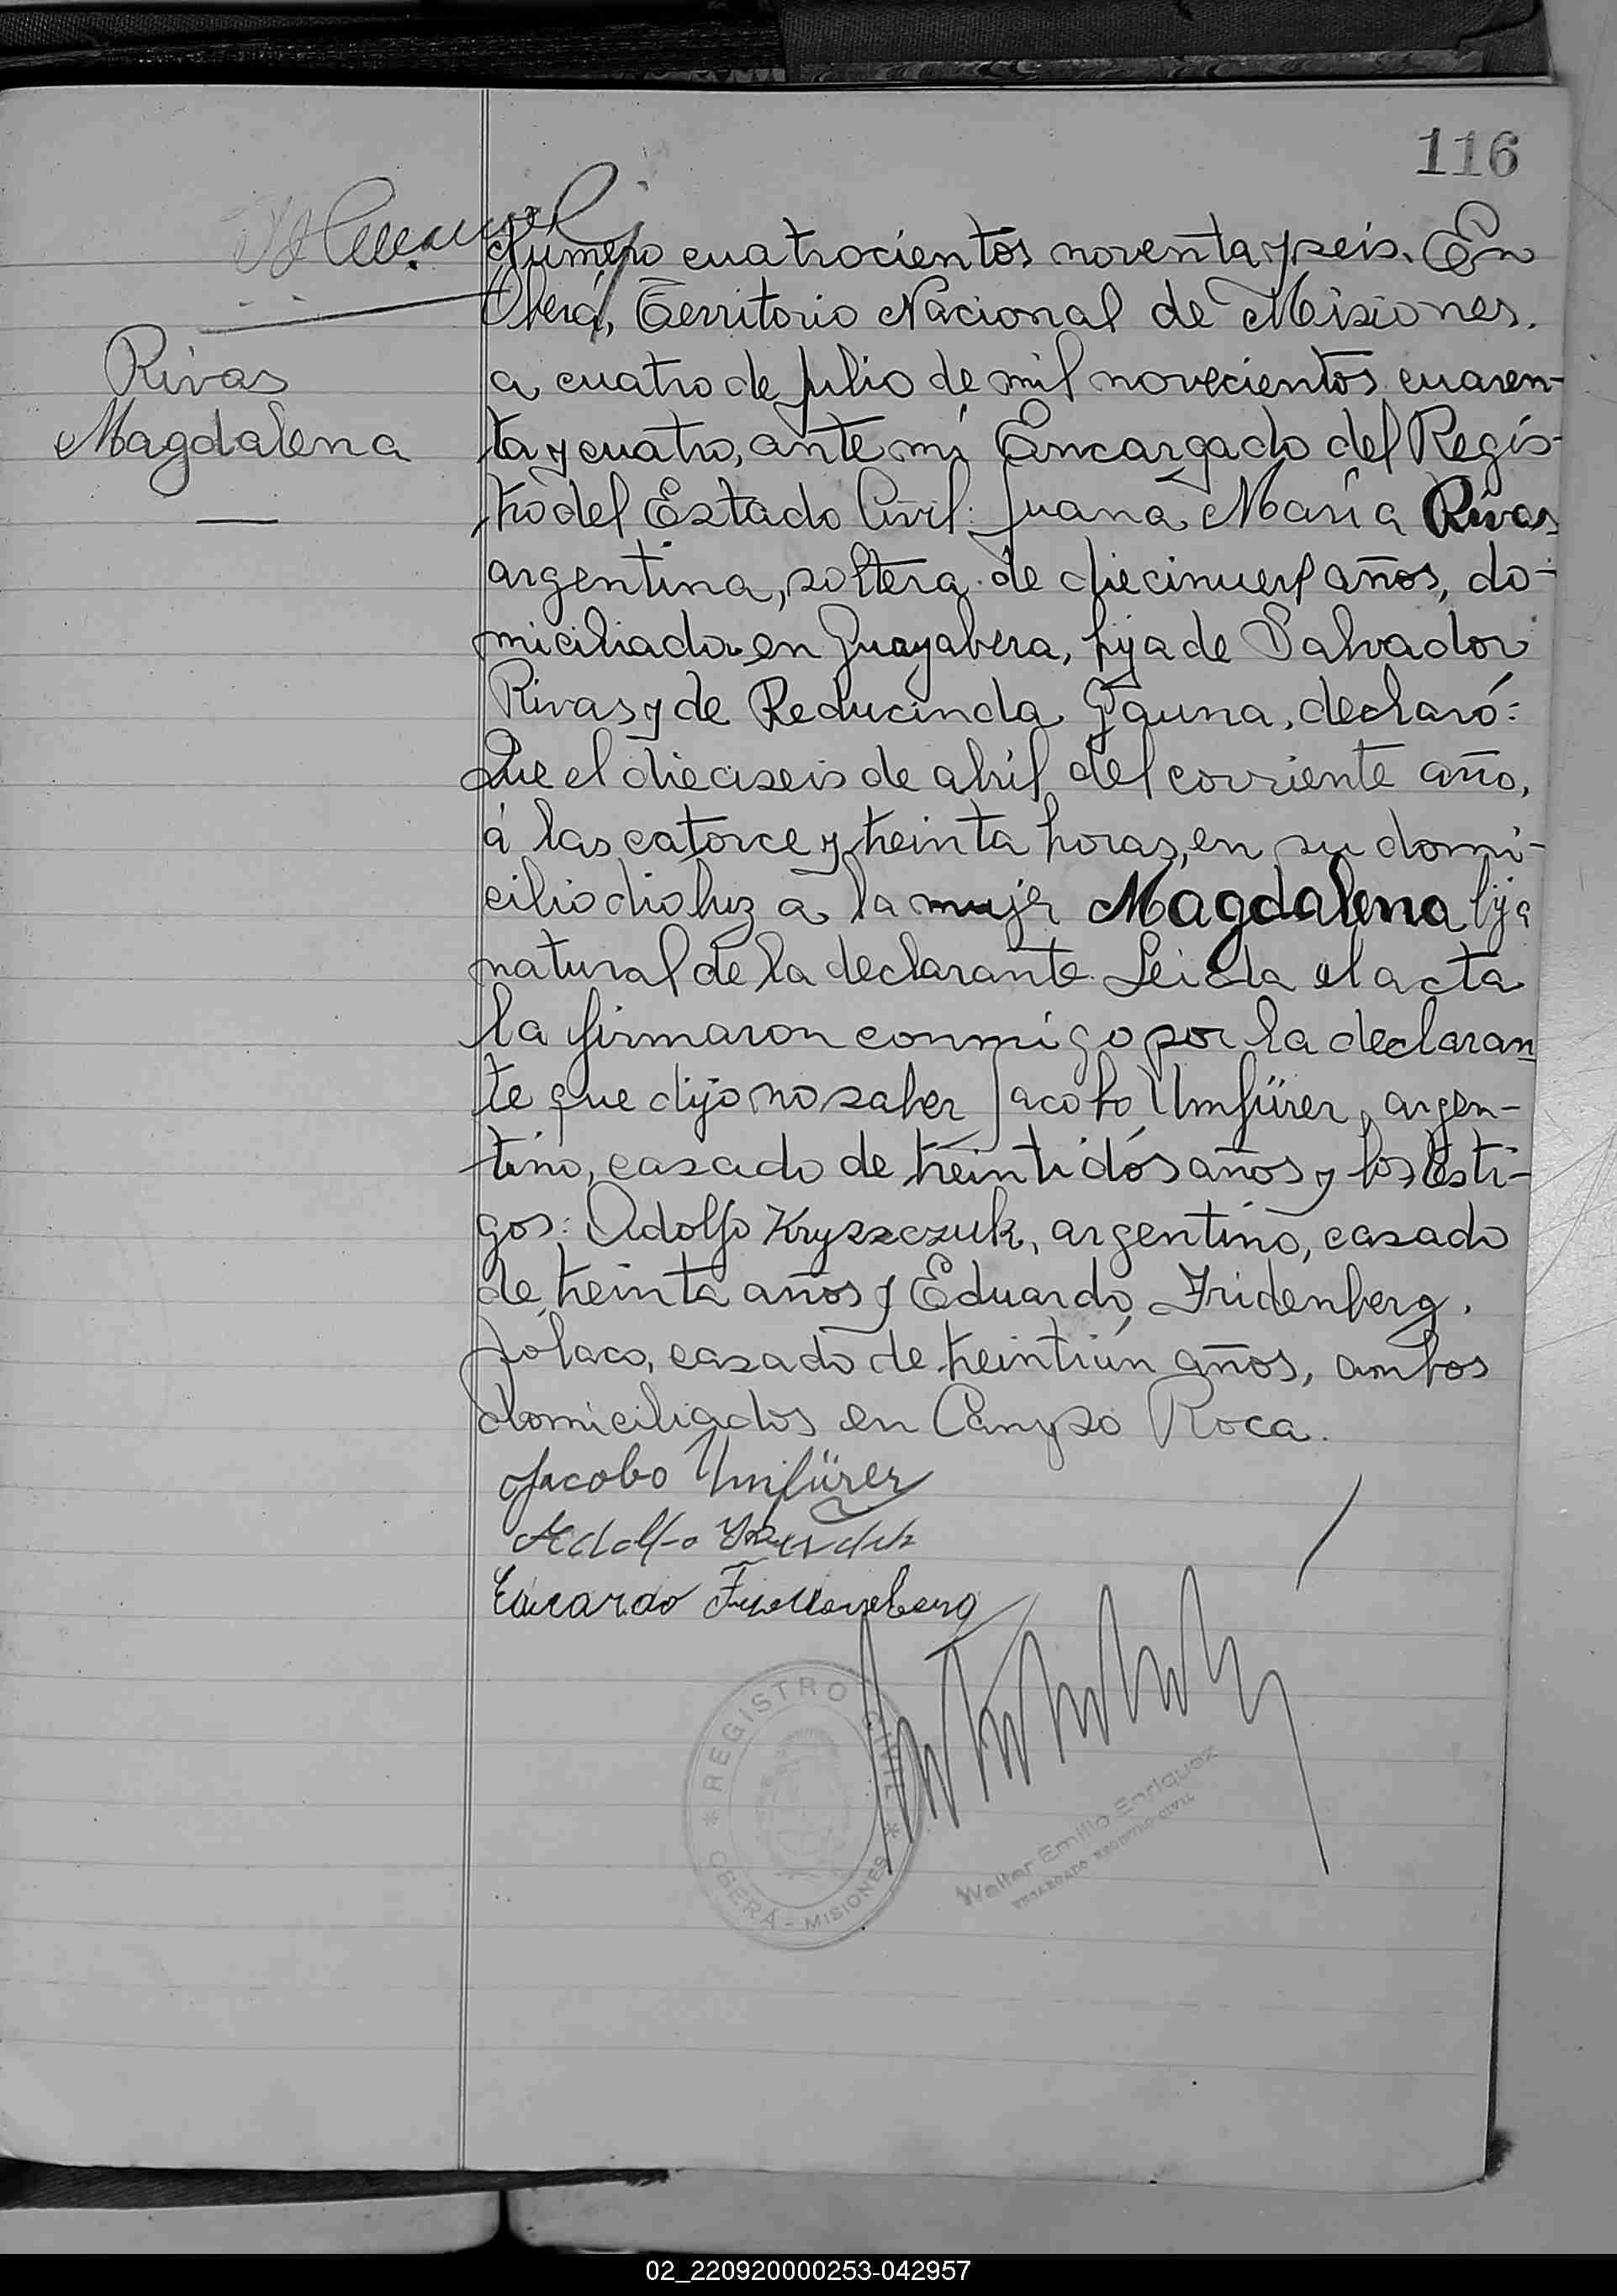 116
Número cuatrocientos noventa y seis. En
Oberá, Territorio Nacional de Misiones,
Rivas
Magdalena
a cuatro de julio de mil novecientos cuaren-
ta y cuatro, ante mi Encargado del Regis-
tro del Estado Civil: Juana María Rivas
argentina, soltera de diecinueve años, do-
miciliada en Guayabera, hija de Salvador
Rivas y de Reducinda Gauna, declaró:
Que el dieciseis de abril del corriente año,
á las catorce y treinta horas, en su domi-
cilio dio luz a la mujer Magdalena hija
natural de la declarante. Leida el acta
la firmaron conmigo por la declaran
te que dijo no saber Jacobo Umfürer, argen-
tino, casado de treintidós años y los testi-
gos: Adolfo Kryszczuk, argentino, casado
de treinta años y Eduardo Fridenberg,
polaco, casado de treintiún años, ambos
domiciliados en Campo Roca.
Jacobo Umfürer
Adolfo
Eduardo
REGISTRO CIVIL
OBERÁ - MISIONES
Walter Emilio Enriquez
ENCARGADO REGISTRO CIVIL
02_220920000253-042957